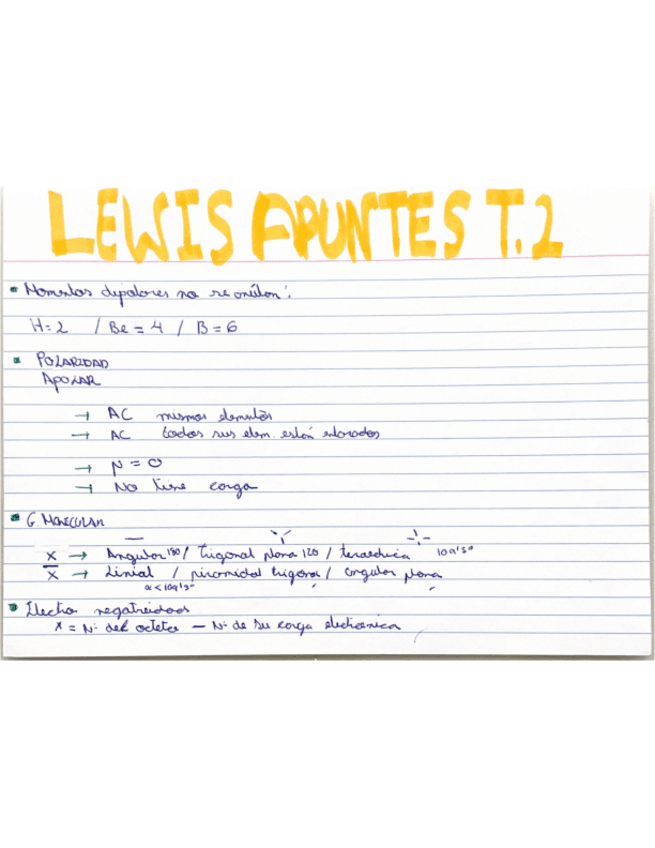 LEWIS APUNTES T.2
Momentos dipolares no se anulan:
H=2 / Be = 4 / B = 6
POLARIDAD
APOLAR
→ AC mismos elementos
→ AC todos sus elem. están
→ µ = 0
→ No tiene carga
G. MOLECULAR
X → Angular 180 / trigonal plana 120 / 109'5º
X → Linial / piramidal trigonal / angular plana
α < 109'5º
Electro negatividad
X = Nº del octeto — Nº de su carga electronica